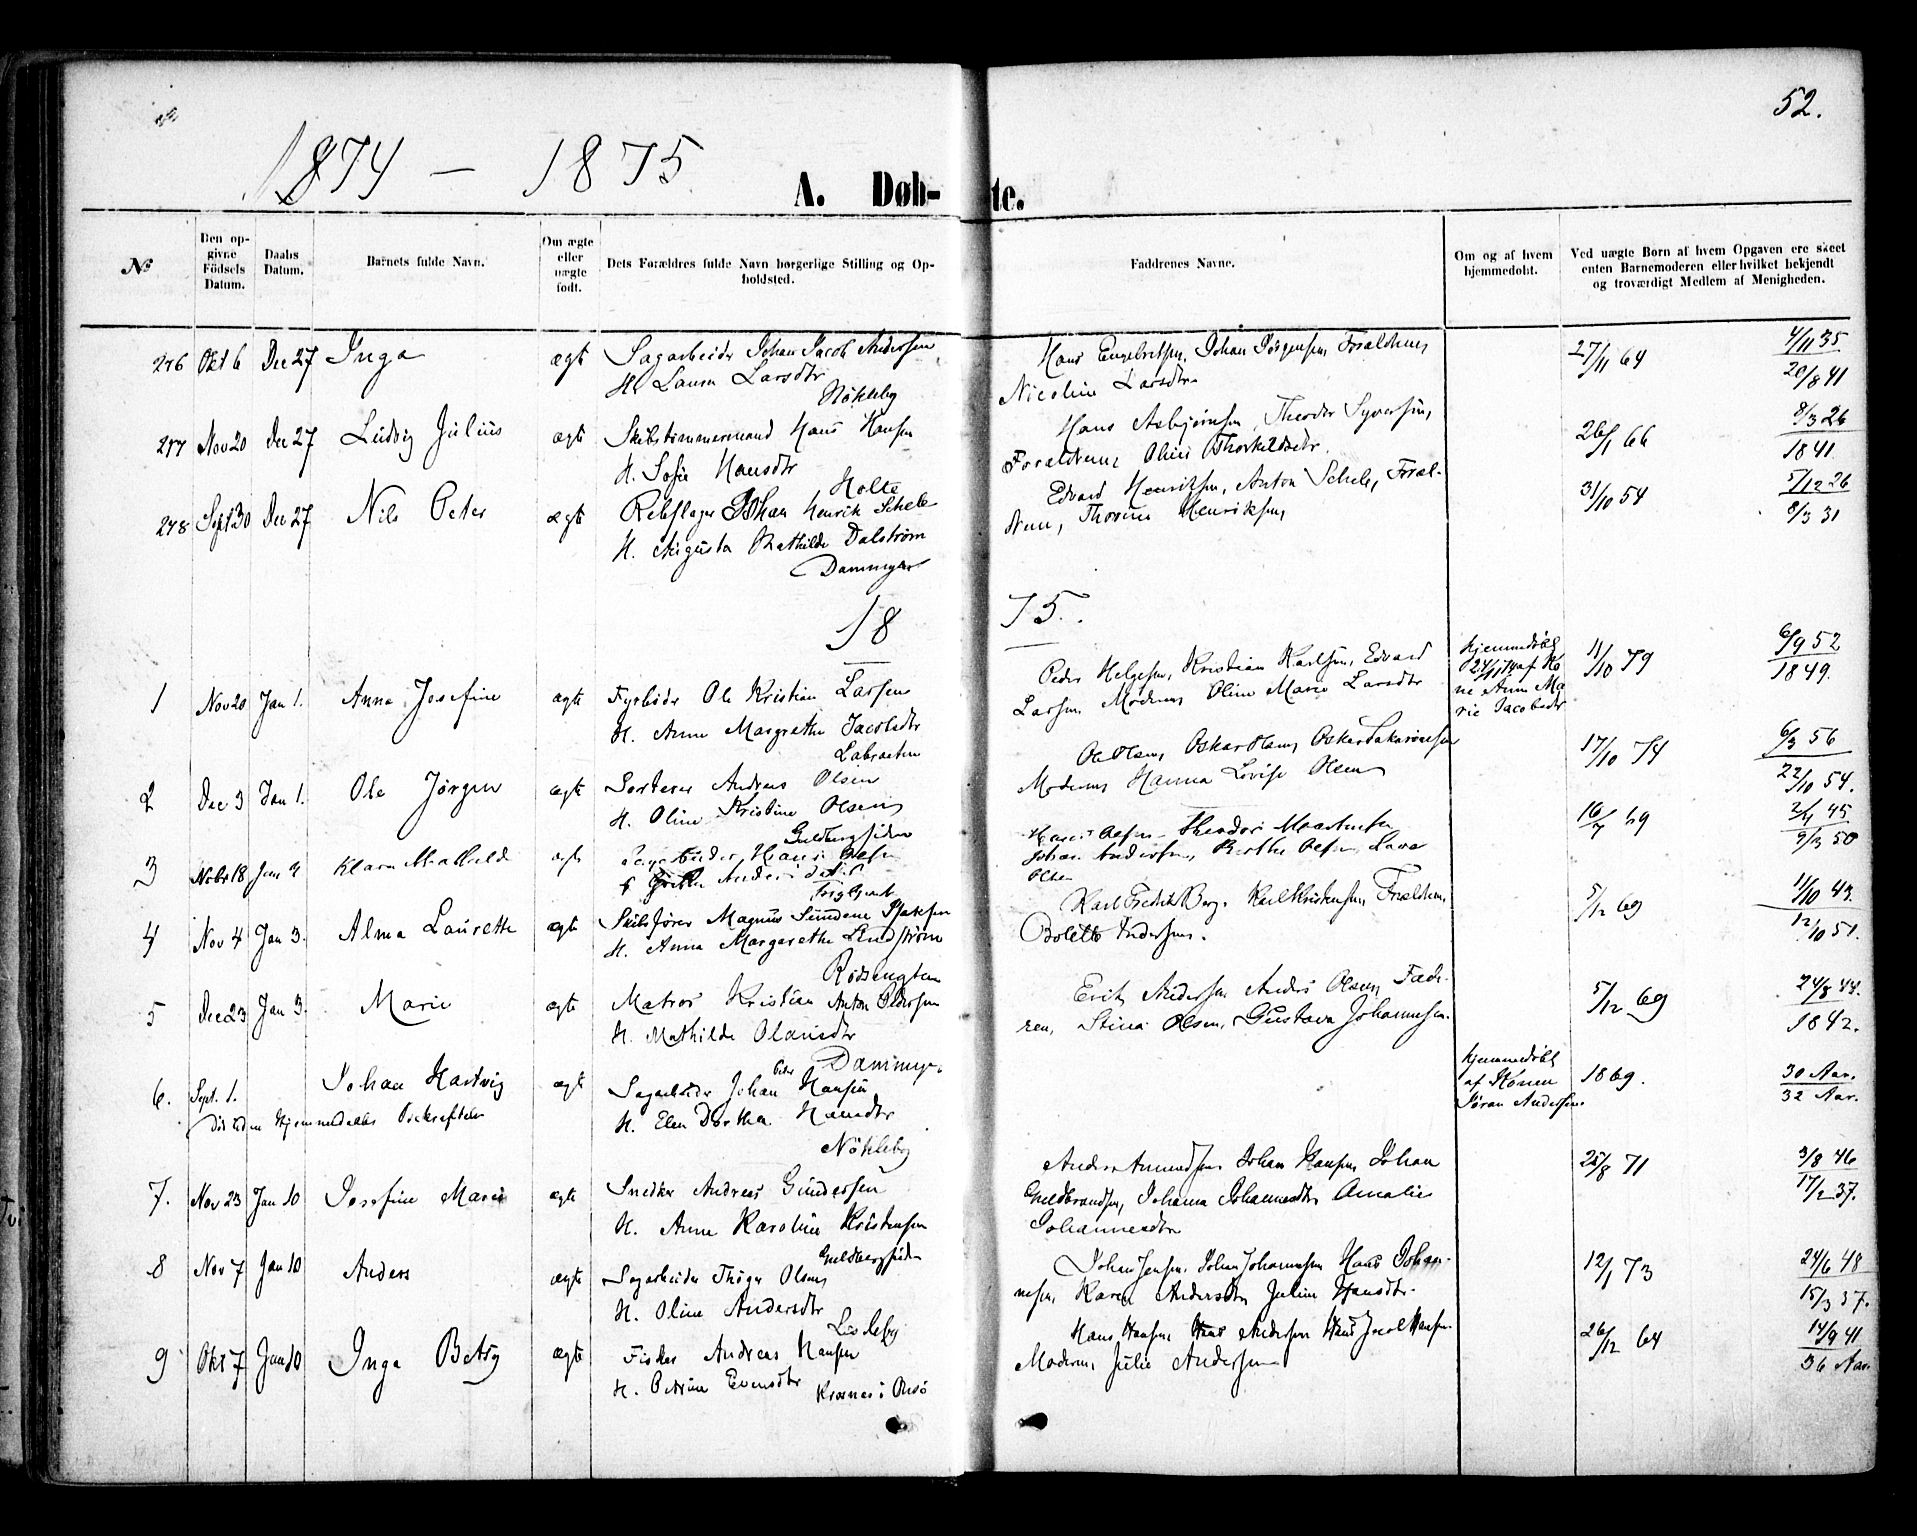 52.
1874 – 1875
A. Døb- te.
№
Den op-
givne
Födsels
Datum.
Daabs
Datum.
Barnets fulde Navn.
Om ægte
eller
uægte
født.
Dets Forældres fulde Navn borgerlige Stilling og Op-
holdsted.
Faddrenes Navne.
Om og af hvem
hjemmedøbt.
Ved uægte Born af hvem Opgaven ere skeet
enten Barnemoderen eller hvilket bekjendt
og troværdigt Medlem af Menigheden.
276 Okt 6 Dec 27 Inga ægte Sagarbeider Johan Jacob Andersen
H. Laura Larsdtr
Nökleby
Hans Engebretsen, Johan Jörgensen, Foraldrene,
Nicoline Larsdtr
27/11 64
4/11 35
20/8 41
277 Nov 20 Dec 27 Ludvig Julius ægte Skibstømmermand Hans Hansen
H. Sofie Hansdtr
Holte
Hans Asbjørnsen, Theodor Syversen,
Foraldrene, Oline Thorkildsdtr.
26/1 66
8/3 26
1841
278 Sept 30 Dec 27 Nils Peter ægte Rebslager Johan Henrik Schele
H. Augusta Mathilde Dalström
Dammyr
Edvard Henriksen, Anton Schele, Foræl-
drene, Thorine Henriksen,
31/10 54
5/12 26
8/3 31
18 75.
1 Nov 20 Jan 1. Anna Josefine ægte Fyrbøder Ole Kristian Larsen
H. Anne Margrethe Jacobsdtr
Labraaten
Peder Helgesen, Kristian Karlsen, Edvard
Larsen, Moderen, Oline Marie Larsdtr
hjemmedøbt
24/11 74 af Ko
ne Anne Ma
rie Jacobsdtr
11/10 79
6/9 52
1849.
2 Dec 3 Jan 1. Ole Jørgen ægte Sorterer Andreas Olsen
H. Oline Kristine Olsen
Guldbergsiden
Ole Olsen, Oskar Olsen, Oskar Sakariasen
Moderen, Hanna Lovise Olsen
17/10 74
6/3 56
22/10 54.
3 Nobr 18 Jan Klara Mathilde ægte Hans Olsen
Johan Andersen, Berthe Olsen, Lava
Olsen
16/7 69
2/4 45
9/3 50
4 Nov 4 Jan 3. Alma Laurette ægte Skibsfører Magnus Sundene Isaksen
H. Anna Margarethe Lindstrøm
Rödsengten
Karl Fredrik Berg, Karl Kristensen, Forældrene,
Bolette Andersen.
5/12 69
1/10 43.
12/10 51.
5 Dec 23 Jan 3. Marie ægte Matros Kristian Anton Pedersen
H. Mathilde Olausdtr
Dammyr
Erik Andersen, Anders Olsen, Fade-
ren, Stina Olsen, Gustava Johannesen.
5/12 69
24/8 44.
1842.
6. Sept. 1. Johan Hartvig ægte Sagarbeider Johan Peter Hansen
Död uden Hjemmedaabs Bekræftelse
H. Elen Dorthea Hansdtr
Nökleby
hjemmedøbt
af Konen
Jöran Andersen.
1869.
30 Aar.
32 Aar.
7. Nov 23 Jan 10 Josefine Marie ægte Snedker Andreas Gundersen
H. Anne Karoline Kristensen
Guldbergsiden
Anders Amundsen, Johan Hansen, Johan
Guldbrandsen, Johanna Johannesdtr, Amalie
Johannesdtr
25/8 71
3/8 46
17/2 37.
8 Nov 7 Jan 10 Anders ægte Sagarbeider Thöger Olsen
H. Oline Andersdtr
Lisleby
Johan Jensen, Johan Johannesen, Hans Johan-
nesen, Karen Andersdtr, Juline Hansdtr.
12/1 73
24/6 48
15/3 37.
9 Okt 7 Jan 10 Inga Betsy ægte Fisker Andreas Hansen
H. Petrine Evensdtr Krosnes i Onsö
Hans Hansen, Hans Andersen, Hans Jacob Hansen,
Moderen, Julie Andersen
26/12 64
14/9 41
36 Aar.